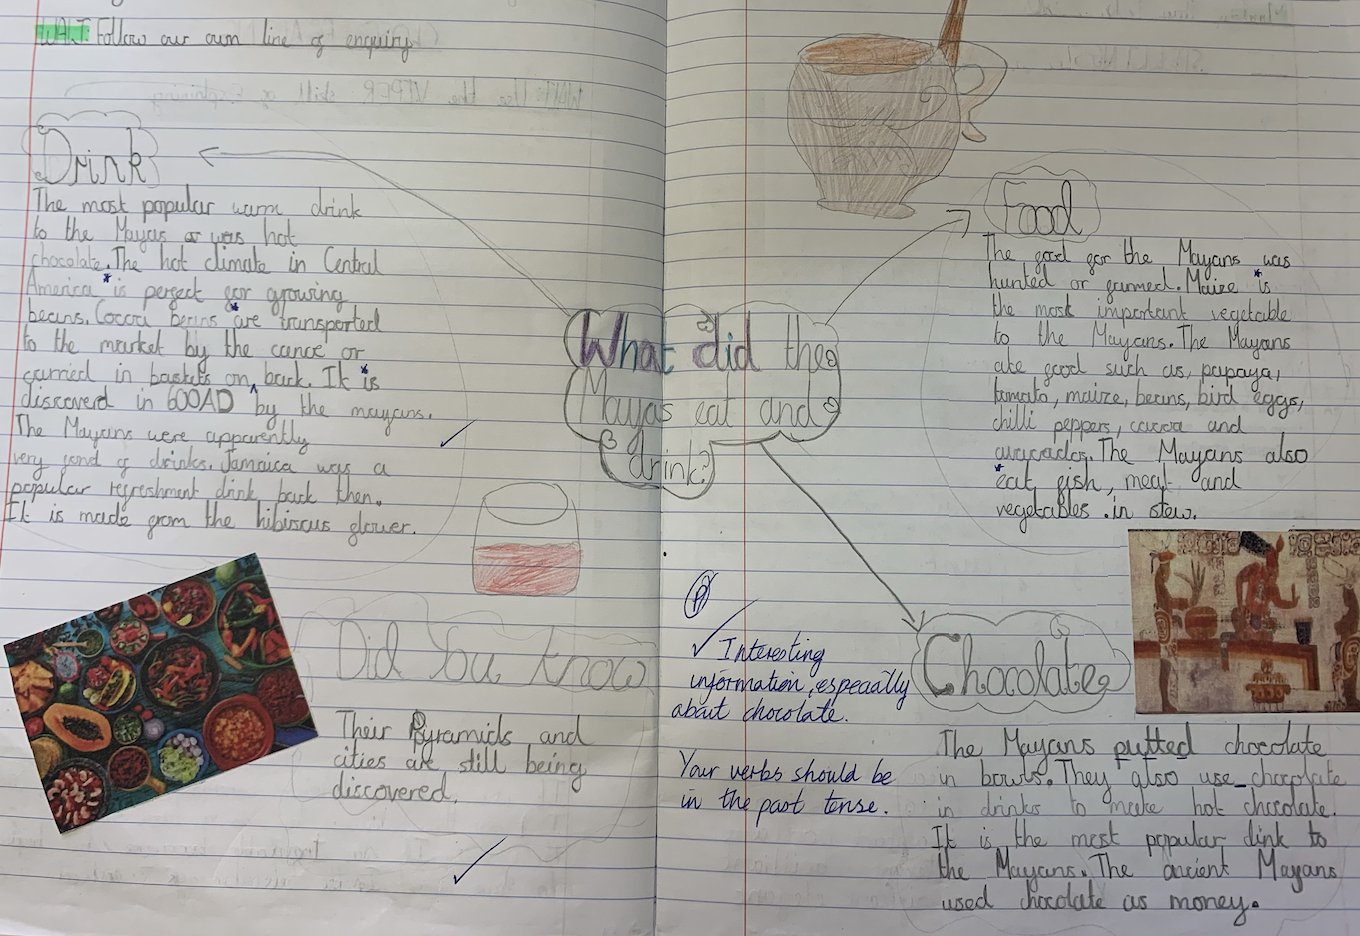 WALT: Follow our own line of enquiry
Drink
The most popular warm drink
to the Mayas or was hot
chocolate. The hot climate in Central
America *is perfect for growing
beans. Cocoa beans *are transported
to the market by the canoe or
carried in baskets on ^ back. It *is
discoverd in 600AD by the mayans.
The Mayans were apparently
very fond of drinks. Jamaica was a
popular refreshment drink back then.
It is made from the hibiscus flower.
What did the
Mayas eat and
drink?
Food
The food for the Mayans was
hunted or farmed. Maize *is
the most important vegetable
to the Mayans. The Mayans
ate food such as, papaya,
tomato, maize, beans, bird eggs,
chilli peppers, cocoa and
avacados. The Mayans also
*eat fish, meat and
vegetables .in stew.
Did You know
Their Pyramids and
cities are still being
discovered.
P
✓ Interesting
information, especially
about chocolate.
Your verbs should be
in the past tense.
Chocolate
The Mayans putted chocolate
in bowls. They also use_chocolate
in drinks to make hot chocolate.
It is the most popular dink to
the Mayans. The ancient Mayans
used chocolate as money.